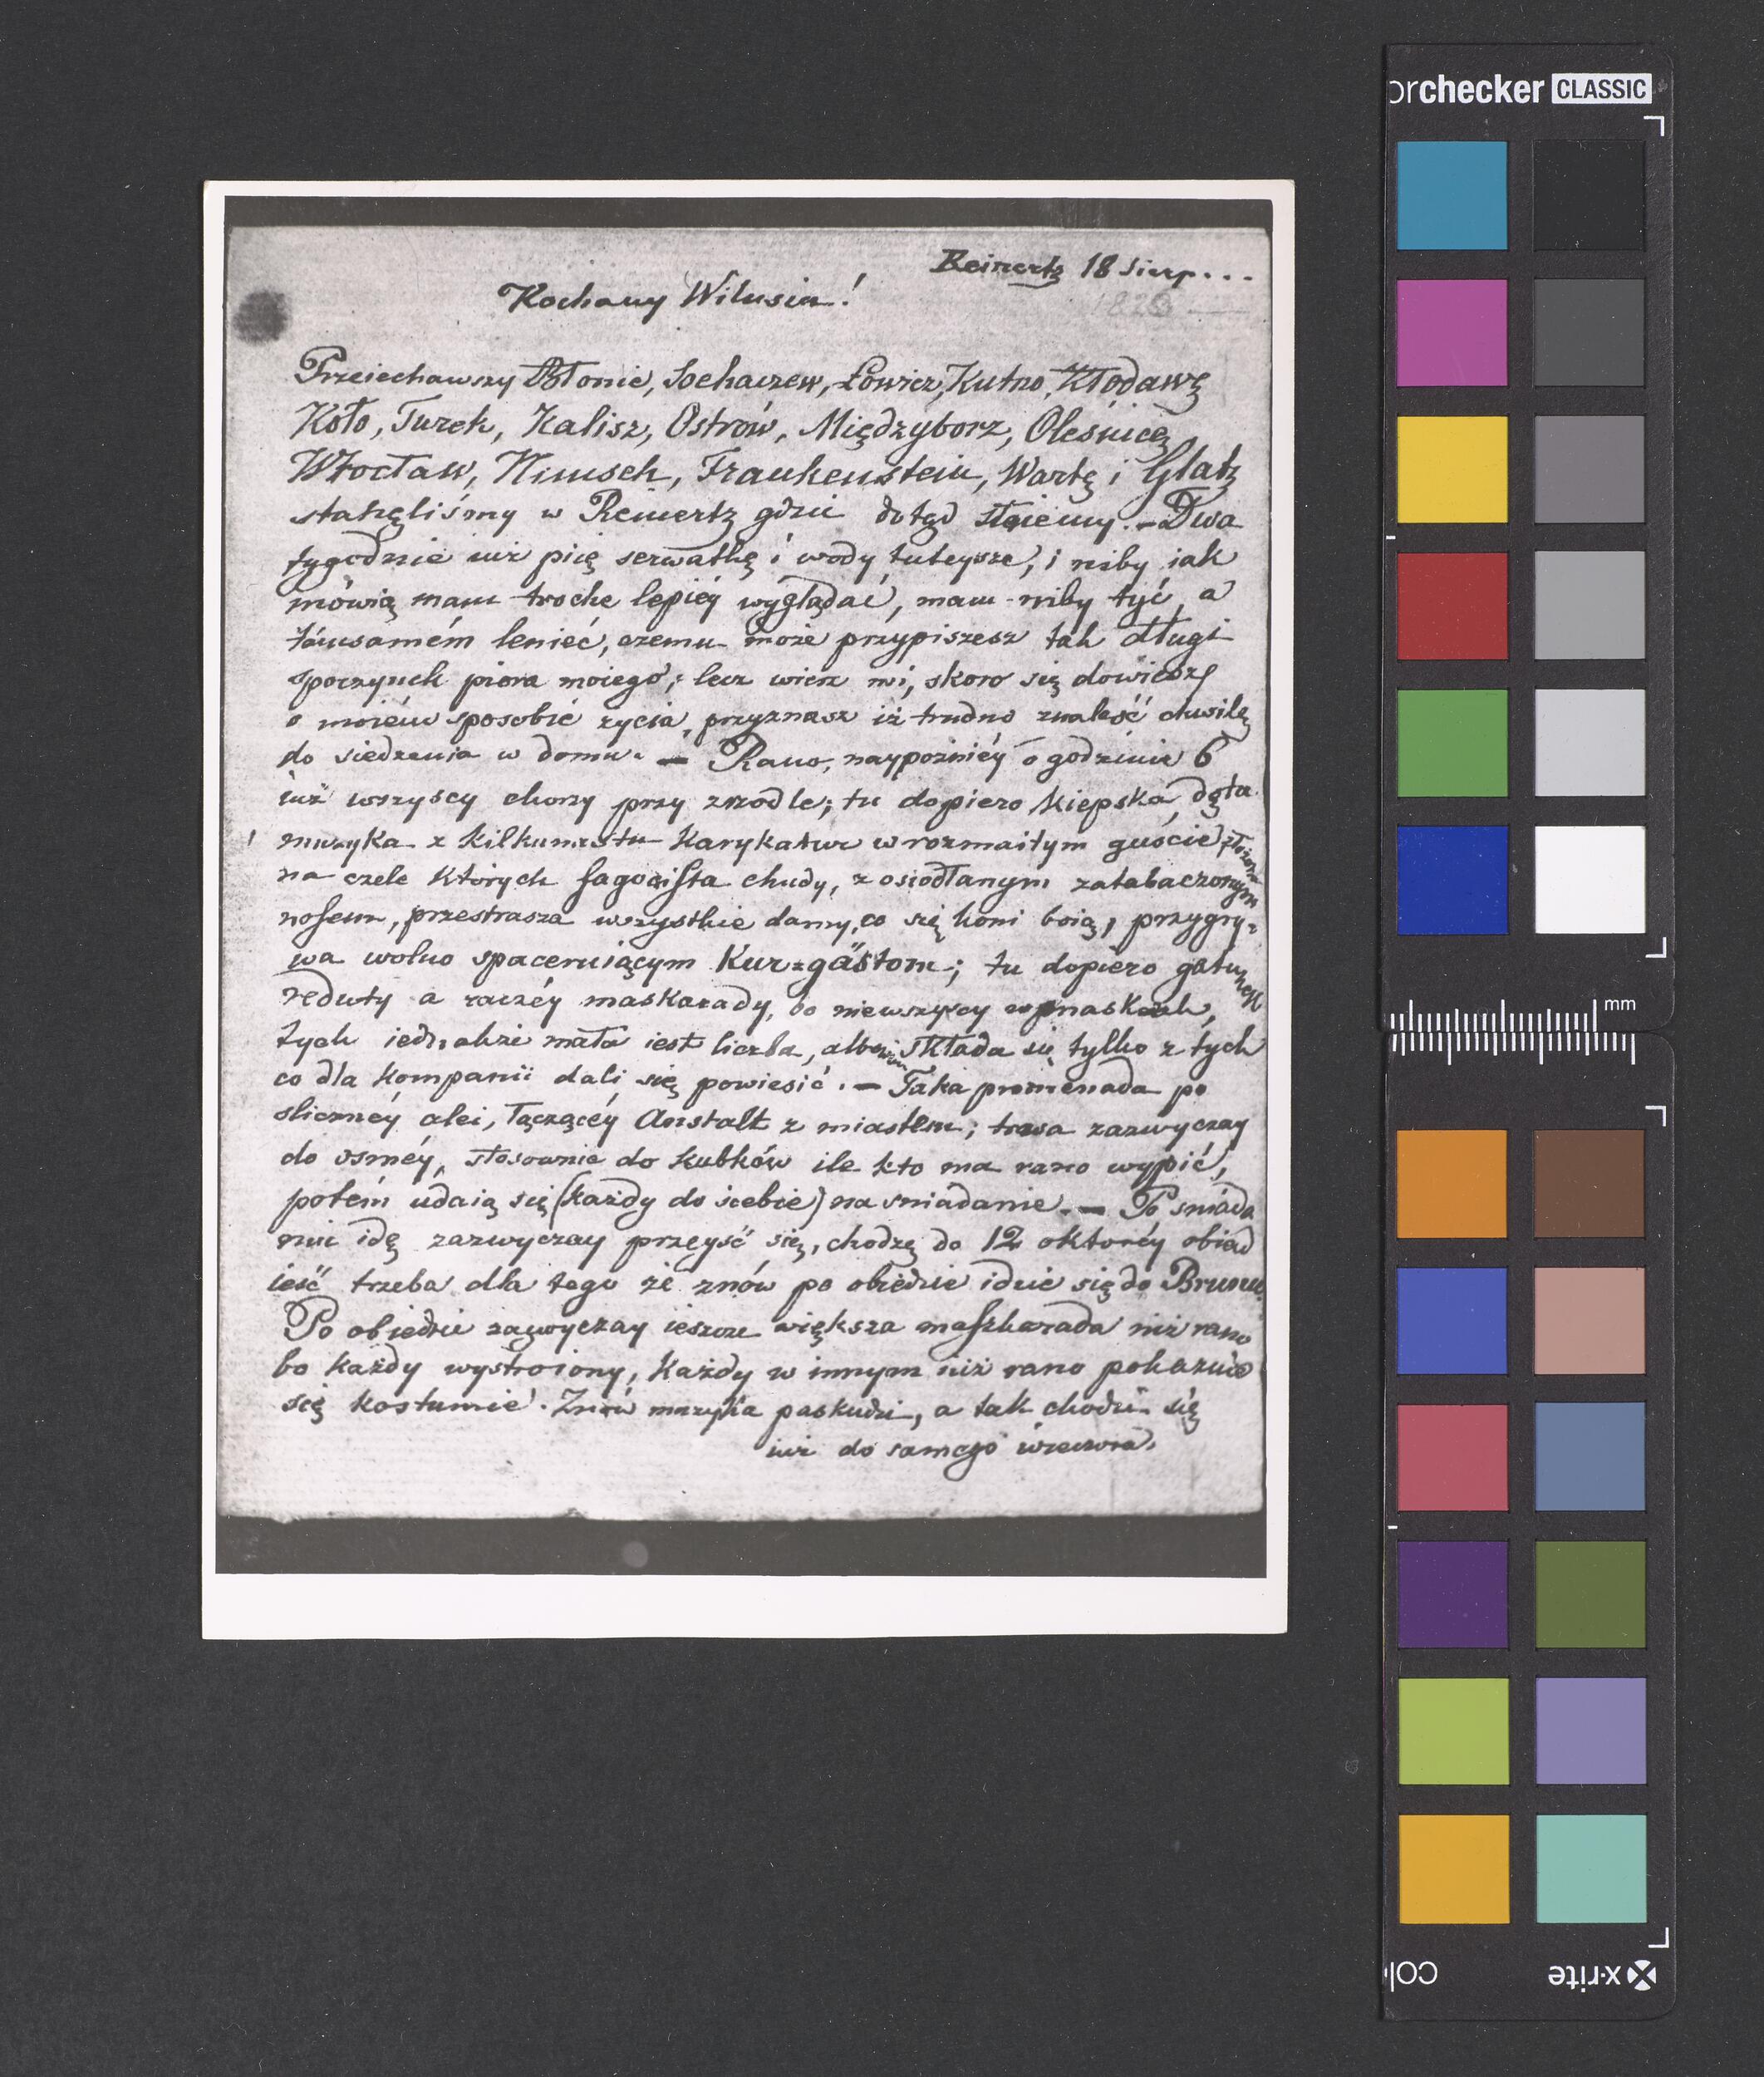 Reinertz 18 Sierp...
1826
Kochany Wilusiu!
Przeiechawszy Błonie, Sochaczew, Łowicz, Kutno, Kłodawę
Koło, Turek, Kalisz, Ostrów, Międzyborz, Oleśnicę,
Włocław, Nimsch, Frankenstein, Wartę i Glatz
stanęliśmy w Reinertz gdzie dotąd stoiemy. – Dwa
tygodnie iuż piię serwatkę i wody tuteysze, i niby iak
mówią mam troche lepiéy wyglądać, mam niby tyć, a
témsamém lenieć, czemu może przypiszesz tak długi
spoczynek pióra moiego; lecz wierz mi, skoro się dowiesz
o moiém sposobie życia, przyznasz iż trudno znaleść chwilę
do siedzenia w domu. – Rano, naypóźniéy o godzinie 6
iuż wszyscy chorzy przy zrzódle; tu dopiero kiepska dęta
muzyka z kilkunastu karykatur w rozmaitym guście złożona
na czele których fagocista chudy, z osiodłanym zatabaczonym
nosem, przestrasza wszystkie damy, co się koni boią, przygry-
wa wolno spaceruiącym Kur-gästom; tu dopiero gatunek
reduty a raczéy maskarady, bo nie wszyscy w maskach,
tych iednakże mała iest liczba, albowiem składa się tylko z tych
co dla kompanii dali się powiesić. – Taka promenada po
sliczney alei, łączącéy Anstalt z miastem; trwa zazwyczay
do osméy, stosownie do kubków ile kto ma rano wypić,
potém udaią się (każdy do siebie) na sniadanie. – Po sniada
niu idę zazwyczay przeyść się, chodzę do 12 o któréy obiad
ieść trzeba dla tego że znów po obiedzie idzie się do Brunnu.
Po obiedzie zazwyczay ieszcze większa maszkarada niż rano
bo każdy wystroiony, każdy w innym niż rano pokazuie
się kostumie. Znów muzyka paskudzi, a tak chodzi się
iuż do samego wieczora.
orchecker CLASSIC
mm
x-rite
col